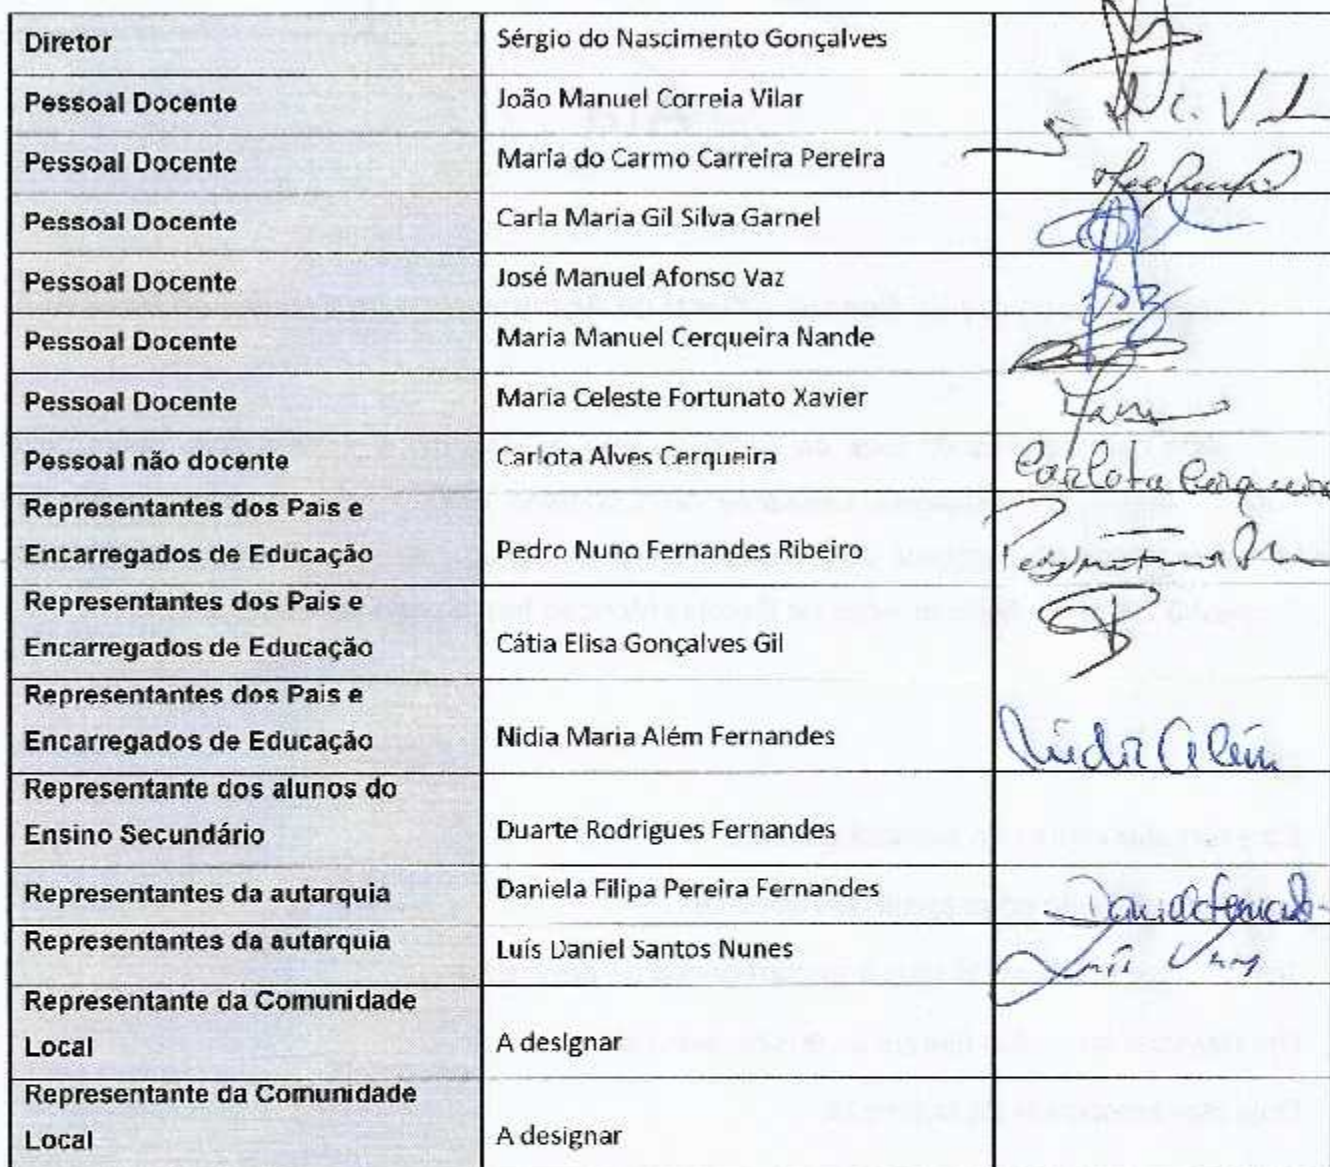 Diretor Sérgio do Nascimento Gonçalves
Pessoal Docente João Manuel Correia Vilar
Pessoal Docente Maria do Carmo Carreira Pereira
Pessoal Docente Carla Maria Gil Silva Garnel
Pessoal Docente José Manuel Afonso Vaz
Pessoal Docente Maria Manuel Cerqueira Nande
Pessoal Docente Maria Celeste Fortunato Xavier
Pessoal não docente Carlota Alves Cerqueira Carlota Cerqueira
Representantes dos Pais e
Encarregados de Educação Pedro Nuno Fernandes Ribeiro
Representantes dos Pais e
Encarregados de Educação Cátia Elisa Gonçalves Gil
Representantes dos Pais e
Encarregados de Educação Nidia Maria Além Fernandes Nidia Além
Representante dos alunos do
Ensino Secundário Duarte Rodrigues Fernandes
Representantes da autarquia Daniela Filipa Pereira Fernandes
Representantes da autarquia Luís Daniel Santos Nunes
Representante da Comunidade
Local A designar
Representante da Comunidade
Local A designar